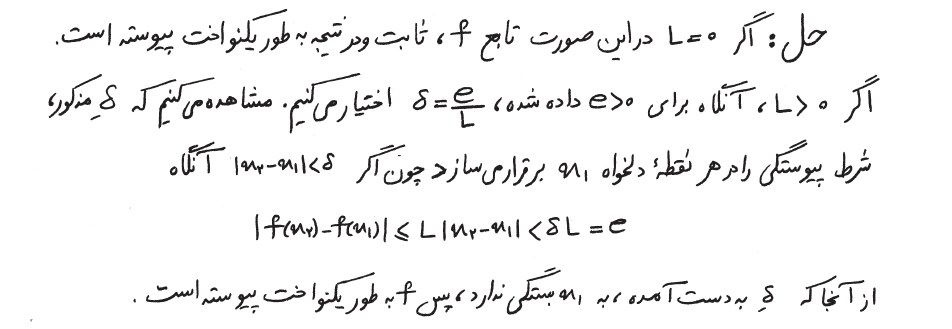 حل: اگر L=0 در این صورت تابع f، ثابت و در نتیجه به طور یکنواخت پیوسته است.
اگر L>0، آنگاه برای e>0 داده شده، δ=e/L اختیار می‌کنیم. مشاهده می‌کنیم که δِ مذکور،
شرط پیوستگی را در هر نقطهٔ دلخواه x₁ برقرار می‌سازد چون اگر |x₂-x₁|<δ آنگاه
|f(x₂)-f(x₁)| ≤ L|x₂-x₁| < δL = e
از آنجا که δِ به دست آمده، به x₁ بستگی ندارد، پس f به طور یکنواخت پیوسته است.